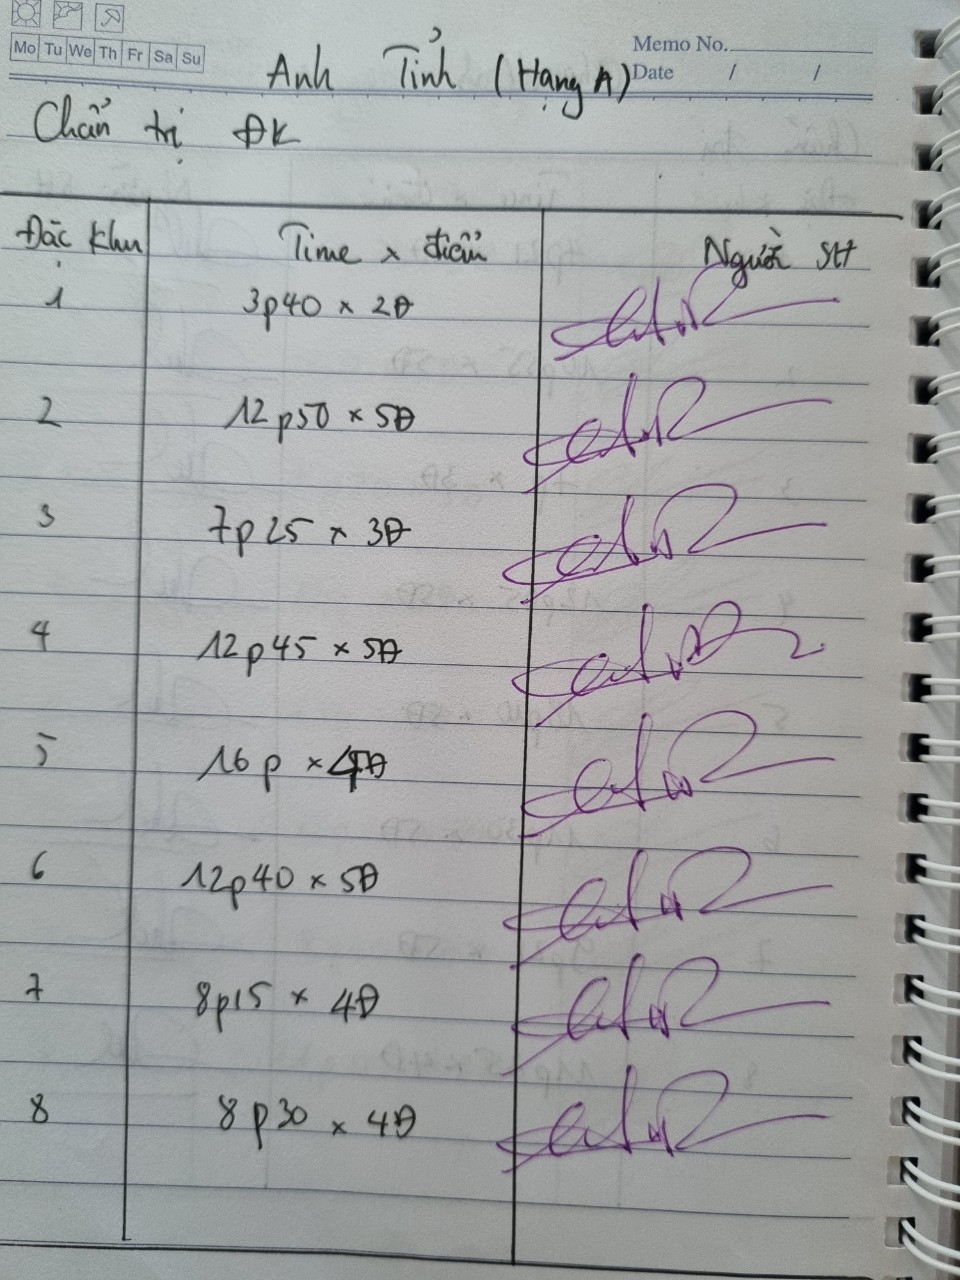 Mo Tu We Th Fr Sa Su
Memo No.
Date / /
Anh Tỉnh (Hạng A)
Chẩn trị ĐK
Đặc khu Time x điểm Người
1 3p40 x 2Đ
2 12p50 x 5Đ
3 7p25 x 3Đ
4 12p45 x 5Đ
5 16p x Đ
6 12p40 x 5Đ
7 8p15 x 4Đ
8 8p30 x 4Đ